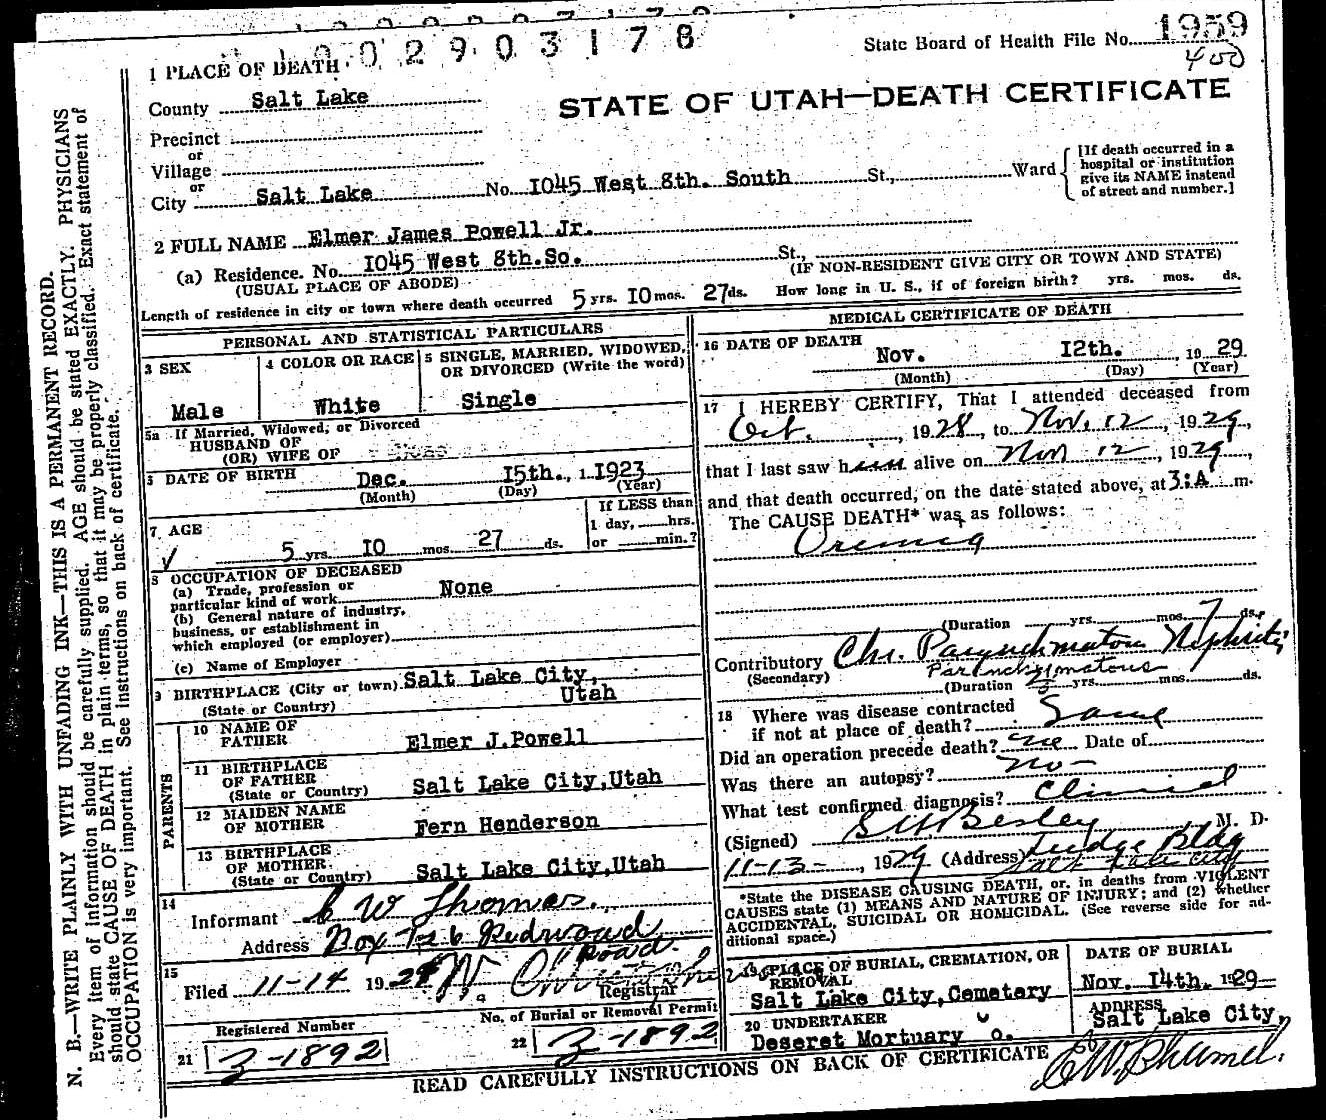 1002903178
State Board of Health File No. 1959
400
1 PLACE OF DEATH
County Salt Lake
STATE OF UTAH—DEATH CERTIFICATE
Precinct
or
Village
or
City Salt Lake No. 1045 West 8th. South St., Ward
[If death occurred in a
hospital or institution
give its NAME instead
of street and number.]
2 FULL NAME Elmer James Powell Jr.
(a) Residence. No. 1045 West 8th.So. St.,
(USUAL PLACE OF ABODE) (IF NON-RESIDENT GIVE CITY OR TOWN AND STATE)
Length of residence in city or town where death occurred 5 yrs. 10 mos. 27 ds. How long in U. S., if of foreign birth? yrs. mos. ds.
PERSONAL AND STATISTICAL PARTICULARS
3 SEX
Male
4 COLOR OR RACE
White
5 SINGLE, MARRIED, WIDOWED,
OR DIVORCED (Write the word)
Single
5a If Married, Widowed, or Divorced
HUSBAND OF
(OR) WIFE OF
DATE OF BIRTH Dec. 15th., 1 1923
(Month) (Day) (Year)
7 AGE
5 yrs. 10 mos. 27 ds.
If LESS than
1 day, hrs.
or min.?
8 OCCUPATION OF DECEASED
(a) Trade, profession or
particular kind of work None
(b) General nature of industry,
business, or establishment in
which employed (or employer)
(c) Name of Employer
9 BIRTHPLACE (City or town) Salt Lake City,
(State or Country) Utah
PARENTS
10 NAME OF
FATHER Elmer J.Powell
11 BIRTHPLACE
OF FATHER
(State or Country) Salt Lake City,Utah
12 MAIDEN NAME
OF MOTHER Fern Henderson
13 BIRTHPLACE
OF MOTHER
(State or Country) Salt Lake City,Utah
14
Informant C W Thomas.
Address Box 726 Redwood
Road.
15
Filed 11-14 1929
Registrar
Registered Number
21 Z-1892
No. of Burial or Removal Permit
22 Z-1892
MEDICAL CERTIFICATE OF DEATH
16 DATE OF DEATH
Nov. 12th. , 19 29
(Month) (Day) (Year)
17 I HEREBY CERTIFY, That I attended deceased from
Oct. , 1928, to Nov. 12, 1929,
that I last saw him alive on Nov 12, 1929,
and that death occurred, on the date stated above, at 3:A m.
The CAUSE DEATH* was as follows:
Uremia
(Duration yrs. mos. 7 ds.
Contributory Chr. Parynchmatous Nephritis
(Secondary) Parinchymatous
(Duration yrs. mos. ds.
18 Where was disease contracted
if not at place of death? Same
Did an operation precede death? no Date of
Was there an autopsy? no-
What test confirmed diagnosis? Clinical
(Signed) S H Besley M. D.
11-13-, 1929 (Address) Judge Bldg
Salt Lake City
*State the DISEASE CAUSING DEATH, or, in deaths from VIOLENT
CAUSES state (1) MEANS AND NATURE OF INJURY; and (2) whether
ACCIDENTAL, SUICIDAL OR HOMICIDAL. (See reverse side for ad-
ditional space.)
19 PLACE OF BURIAL, CREMATION, OR
REMOVAL
Salt Lake City,Cemetery
DATE OF BURIAL
Nov. 14th. 1929
20 UNDERTAKER
Deseret Mortuary o.
ADDRESS
Salt Lake City,
READ CAREFULLY INSTRUCTIONS ON BACK OF CERTIFICATE
N. B.—WRITE PLAINLY WITH UNFADING INK—THIS IS A PERMANENT RECORD.
Every item of information should be carefully supplied. AGE should be stated EXACTLY. PHYSICIANS
should state CAUSE OF DEATH in plain terms, so that it may be properly classified. Exact statement of
OCCUPATION is very important. See instructions on back of certificate.